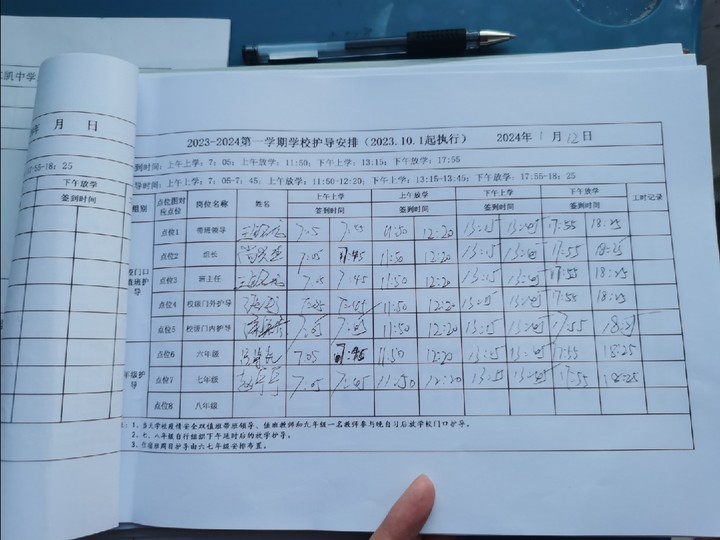 凯中学
年 月 日
2023-2024第一学期学校护导安排（2023.10.1起执行） 2024年 1 月 12 日
到时间：上午上学：7：05；上午放学：11:50；下午上学：13:15；下午放学：17:55
导时间：上午上学：7:05-7：45；上午放学：11:50-12:20；下午上学：13:15-13:45；下午放学：17:55-18：25
17:55-18：25
下午放学
签到时间
组别 点位图对应点位 岗位名称 姓名 上午上学 上午放学 下午上学 下午放学 工时记录
签到时间 签到时间 签到时间 签到时间
点位1 带班领导 7:05 7:45 11:50 12:20 13:15 13:45 17:55 18:25
点位2 组长 7:05 7:45 11:50 12:20 13:15 13:45 17:55 18:25
点位3 班主任 7:05 7:45 11:50 12:20 13:15 13:45 17:55 18:25
点位4 校级门外护导 7:05 7:45 11:50 12:20 13:15 13:45 17:55 18:25
点位5 校级门内护导 7:05 7:45 11:50 12:20 13:15 13:45 17:55 18:25
门口值班护导
点位6 六年级 7:05 7:45 11:50 12:20 13:15 13:45 17:55 18:25
年级护导 点位7 七年级 7:05 7:45 11:50 12:20 13:15 13:45 17:55 18:25
点位8 八年级
1、当天学校疫情安全双值班带班领导、值班教师和九年级一名教师参与晚自习后放学校门口护导。
2、七、八年级自行组织下午延时后的放学护导。
3、值周护导由六七年级安排布置。